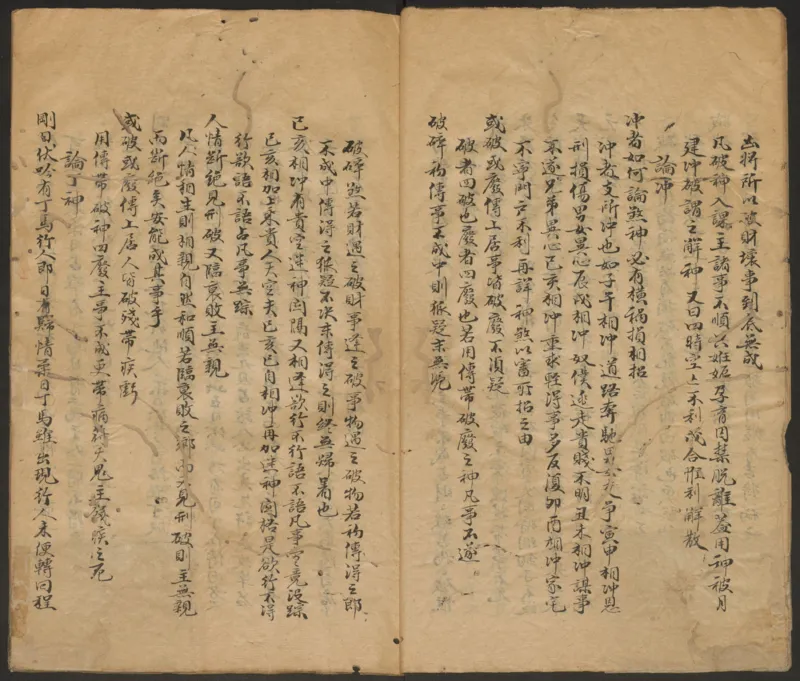 出將所以破財壞事到底無成
凡破神入課主諸事不順只姙娠孕育囚禁脫難盖用神被月
建冲破謂之解神又曰四時空亡不利成合惟利解散
論冲
冲者如何論煞神必有橫禍損相招
冲者支所冲也如子午相冲道路奔馳男女爭寅申相冲恩
刑損傷男女異心辰戌相冲奴僕逃走貴賤不明丑未相冲謀事
不遂兄弟異心巳亥相冲重求輕得事多反復卯酉相冲家宅
不寧門戶不利再詳神煞以害所招之由
或破或廢傳上居事皆破廢不須疑
破者四破也廢者四廢也若用傳帶破廢之神凡事不遂
破碎初傳事不成中則狐疑末無
破碎煞若財遇之破財事逢之破事物遇之破物若初傳得之即
不成中傳得之狐疑不决末傳得之則終無歸着也
巳亥相冲有貴空迷神関隔又相逢欲行不行語不語凡事究竟沒踪
巳亥相加上乘貴人天空夫巳亥已自相冲再加迷神関格是欲行不得
行欲語不語占凡事無踪
人情斷絕見刑破又臨衰敗主無親
凡人情相生則相親自然和順若臨衰敗之鄉而又見刑破則主無親
而斷絕矣安能成其事乎
或破或廢傳上居人皆破殘帶疾
用傳帶破神四廢主事不成更帶病符天鬼主殘疾之
論丁神
剛日伏吟有丁馬行人即日有歸情柔日丁馬雖出現行人未便轉回程